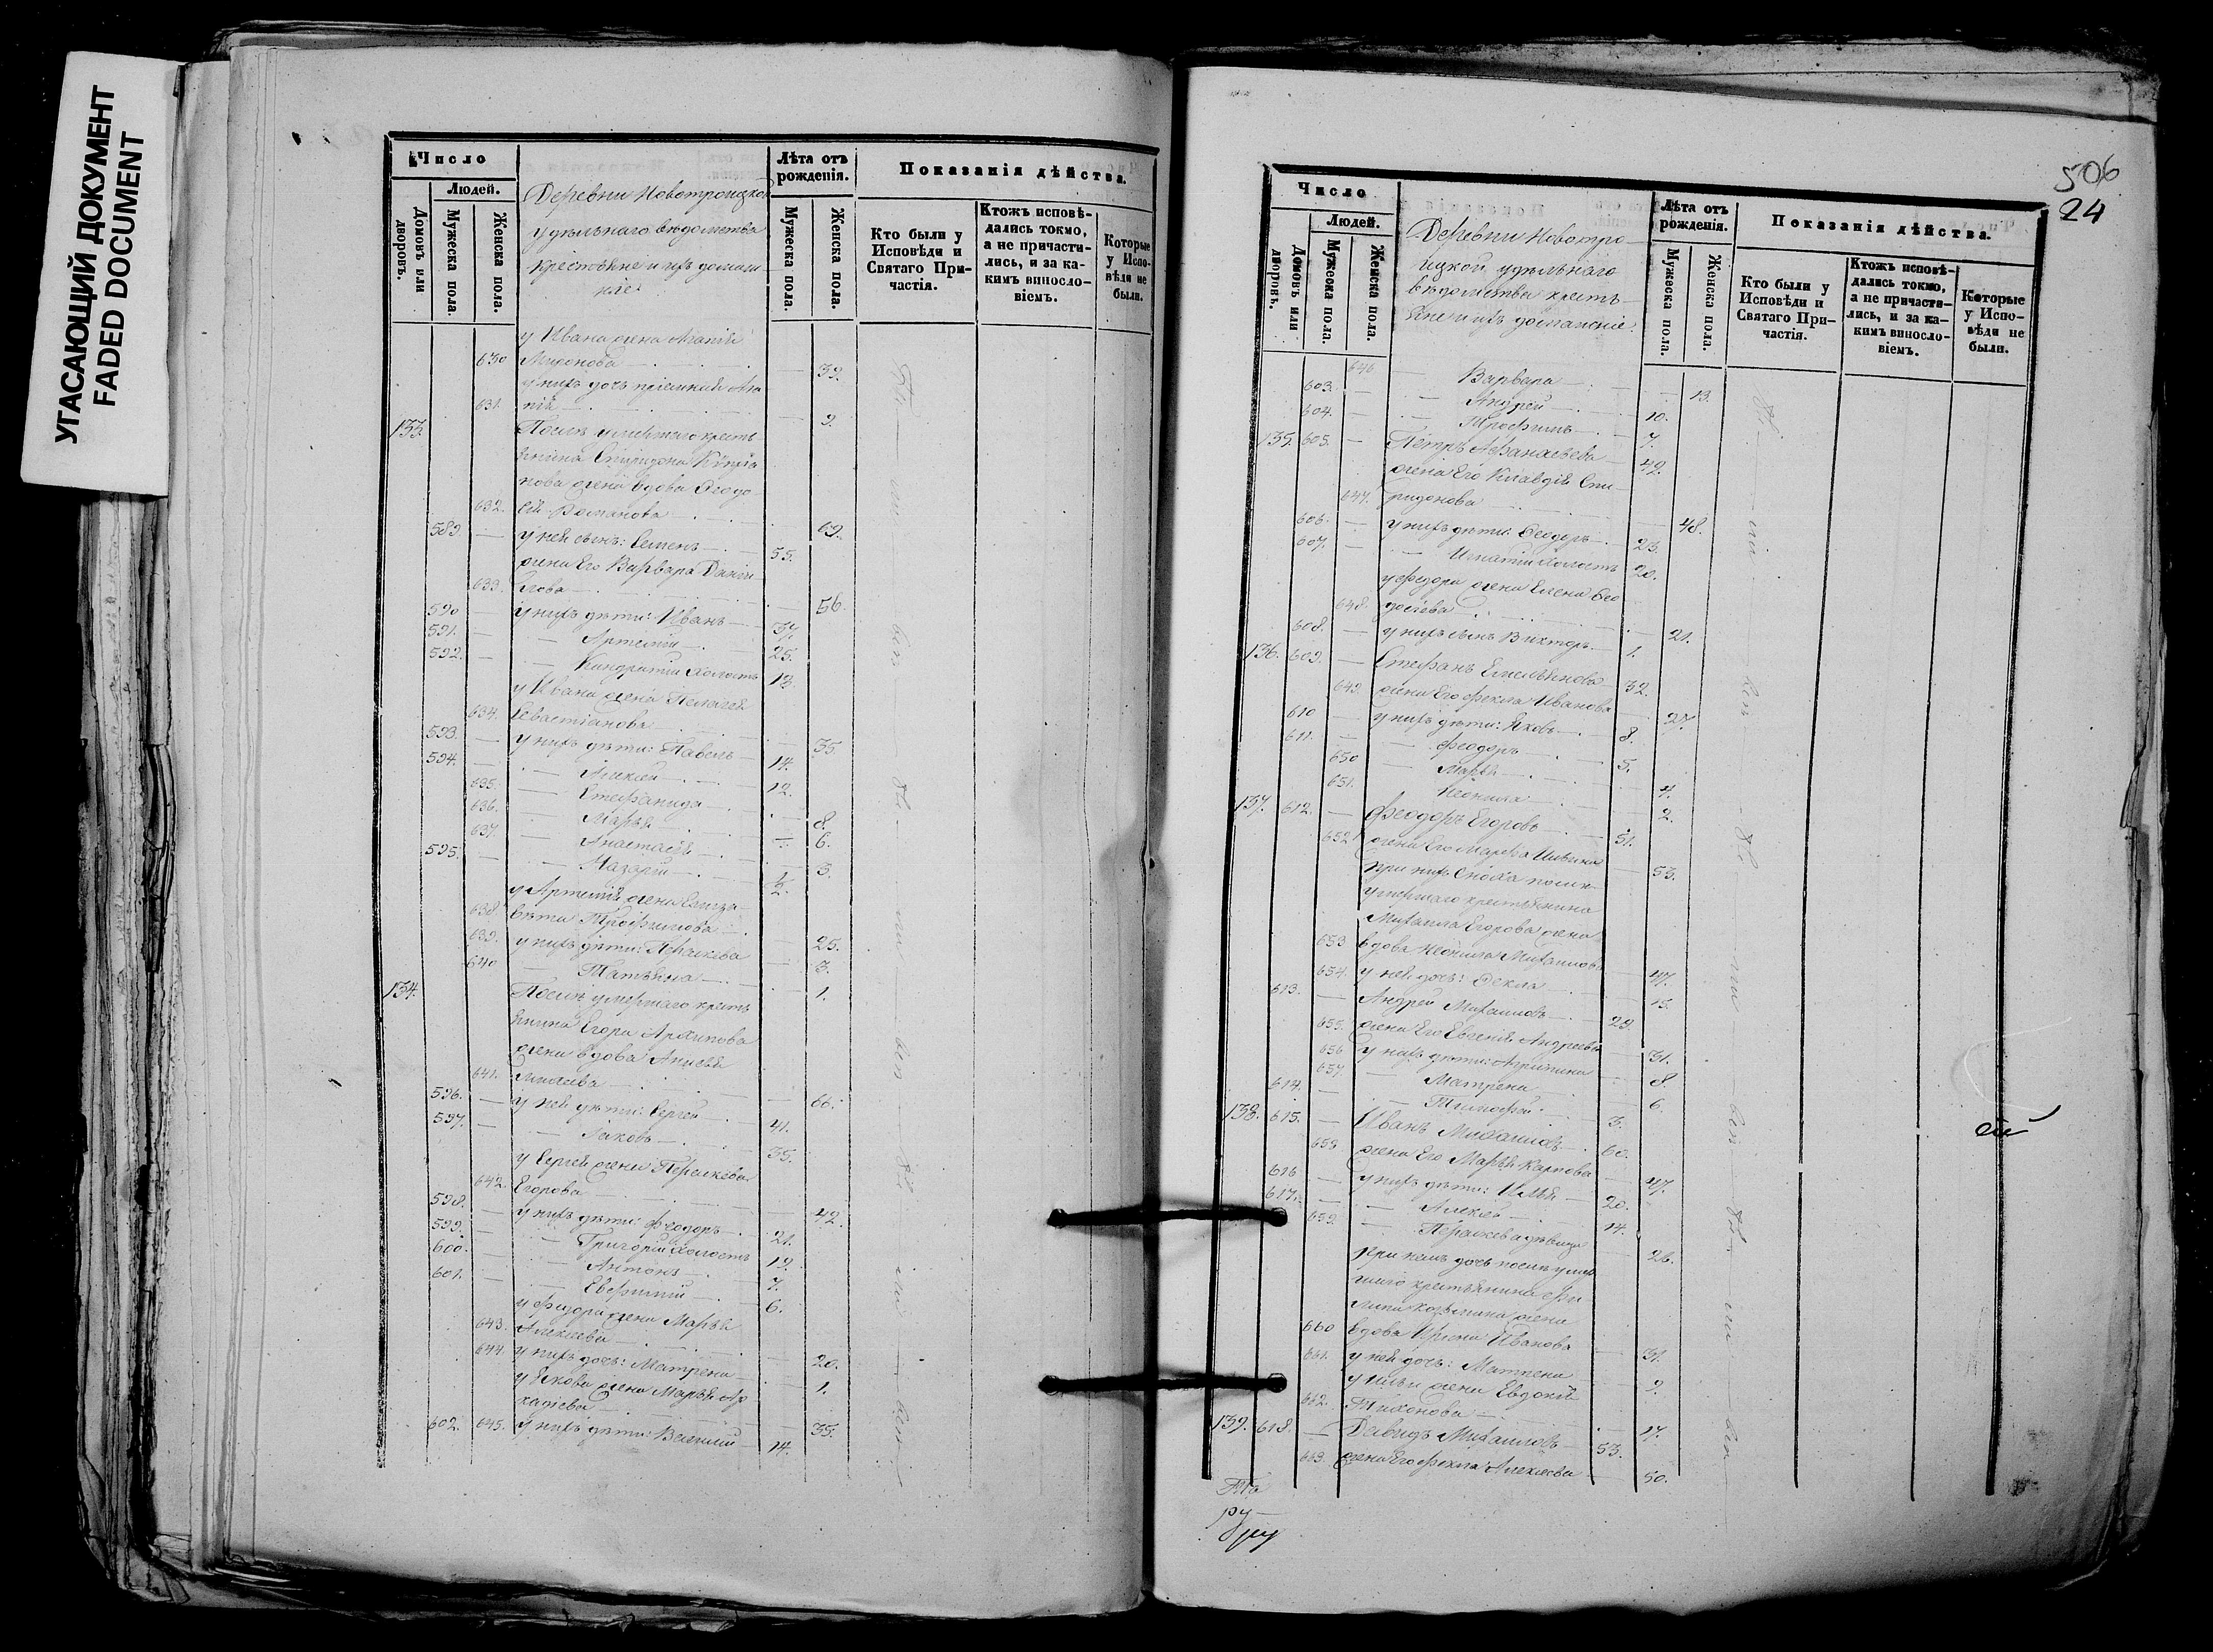 УГАСАЮЩИЙ ДОКУМЕНТ
FADED DOCUMENT
Число
Людей.
Домовъ или дворовъ.
Мужеска пола.
Женска пола.
Деревни Новотроицкой
удѣльнаго вѣдомства
крестьяне и ихъ домаш
ніе
Лѣта отъ рожденія.
Мужеска пола.
Женска пола.
Показанія дѣйства.
Кто были у Исповѣди и Святаго Причастія.
Ктожъ исповѣдались токмо, а не причастились, и за какимъ винословіемъ.
Которые у Исповѣди не были.
у Ивана жена
630 Миронова 39.
у нихъ дочь
631. 9.
133. Послѣ умершаго кресть
янина Спиридона
нова жена вдова Ѳеодо
632. Романова 69.
589. у ней сынъ: Семенъ 55.
жена его Варвара Дании
633. лова 56.
590 у нихъ дѣти: Иванъ 37.
591. Артемій 25.
592. Кондратій холостъ 19.
у Ивана жена Пелагея
634. Севастіанова 35.
593. у нихъ дѣти: Павелъ 14.
594. Алексей 12.
635. Стефанида 8.
636. Марья 6.
637. Анастасія 3.
595. Назарій 1/2.
у Артемія жена Елиза
638. вета Трофимова 25.
639. у нихъ дѣти: Параскева 3.
640 Татьяна 1.
134. Послѣ умершаго кресть
янина Егора Архипова
жена вдова Анисья
641. 66.
596. у ней дѣти: Сергей 41.
597. Іаковъ 35.
у Сергея жена Параскева
642. Егорова 42.
598. у нихъ дѣти: Феодоръ 21.
599. Григорій холостъ 19.
600. Антонъ 7.
601. Евфимій 6.
у Федора жена Марья
643. Алексеева 20.
644. у нихъ дочь: Матрена 1.
у Якова жена Марья Ар
645. кадіева 35.
602. у нихъ дѣти: Василій 14.
506
24
Число
Людей.
Домовъ или дворовъ.
Мужеска пола.
Женска пола.
Деревни Новотро
ицкой удѣльнаго
вѣдомства кресть
яне и ихъ домашніе
Лѣта отъ рожденія.
Мужеска пола.
Женска пола.
Показанія дѣйства.
Кто были у Исповѣди и Святаго Причастія.
Ктожъ исповѣдались токмо, а не причастились, и за какимъ винословіемъ.
Которые у Исповѣди не были.
646 Варвара 13.
603. Андрей 10.
604. Трофимъ 7.
135. 605. Петръ Афанасьевъ 49.
жена его Клавдія Спи
647. ридонова 48.
606. у нихъ дѣти: Ѳеодоръ 23.
607. Игнатій холостъ 20.
у Федора жена Елена Ѳео
648. досіева 21.
608. у нихъ сынъ Викторъ 1.
136. 609. Стефанъ Емельянова 32.
649. жена его Фекла Иванова 27.
610 у нихъ дѣти: Яковъ 8.
611. Феодоръ 5.
650 Марья 4.
651. Неонила 2.
137. 612. Феодоръ Егоровъ 51.
652 жена его Марфа 53.
при нихъ сноха послѣ
умершаго крестьянина
Михаила Егорова жена
653 вдова Неонила Михаилова 47.
654. у ней дочь: Фекла 15.
613. Андрей Михаиловъ 29.
655. жена его Евгенія Андреева 31.
656 у нихъ дѣти: Агрипина 8.
657. Матрена 6.
614. Тимофей 3.
138. 615. Иванъ Михаиловъ 60.
658 жена его Марья Карпова 47.
616 у нихъ дѣти: Илья 20.
617. Алексей 14.
659. Параскева дѣвица 26.
при немъ дочь послѣ умер
шаго крестьянина Фи
липа жена
660 вдова Ирина Иванова 31.
661. у ней дочь: Матрена 9.
у Ильи жена Евдокія
662. Тихонова 17.
139. 618. Давидъ Михаиловъ 53.
663. жена его Фекла Алексеева 50.